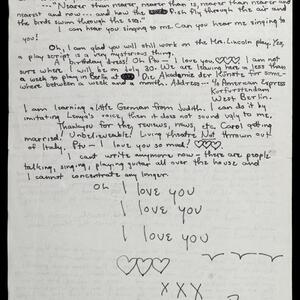 ..."Nearer than near, nearer than is, nearer than nearer and
nearest and now... and how the fish fly through the air and
the birds swim through the sea."
can you hear me singing to you? Can you hear me singing to
you!
Oh, I am glad you will still work on the Mrs. Lincoln play. Yes,
a play script is a very mysterious thing.
A birthday dress! Oh Ptu - I love you ♡♡♡♡ I am not
sure where I will be on July 30. We are leaving here a less than
a week to play in Berlin Die Akademie der Künste for some-
where between a week and a month. Address... c/o American Express
Kurfurstendamm
West Berlin.
I am learning a little German from Judith. I can do it by
imitating Lenya's voice, then it does not sound ugly to me.
Thankyou for the reviews, news, etc. Carol getting
married! Unbelievable! Living Theatre Not thrown out
of Italy, Ptu - I love you so mad! ♡♡♡
I cant write anymore now - there are people
talking, singing, playing guitar all over the house and
I cannot concentrate any longer.
Oh I love you
I love you
I love you
♡♡♡
XXX